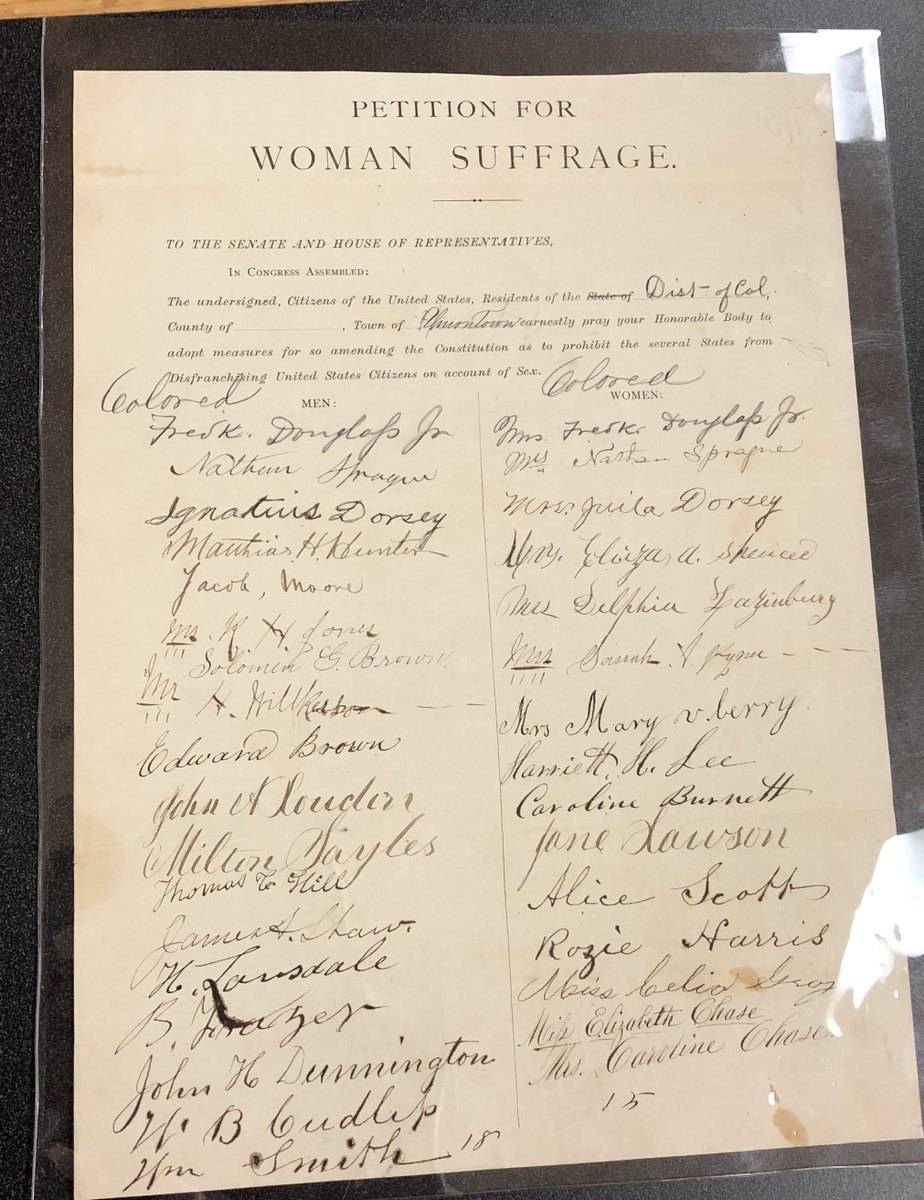 PETITION FOR
WOMAN SUFFRAGE.
TO THE SENATE AND HOUSE OF REPRESENTATIVES,
IN CONGRESS ASSEMBLED:
The undersigned, Citizens of the United States, Residents of the State of Dist of Col,
County of , Town of Uniontown earnestly pray your Honorable Body to
adopt measures for so amending the Constitution as to prohibit the several States from
Disfranchising United States Citizens on account of Sex.
Colored
MEN:
Fredk. Douglass Jr
Nathan Sprague
Ignatius Dorsey
Matthias H. Hunter
Jacob, Moore
Mr. R H Jones
Solomon G. Brown.
Mr H. Wilkerson
Edward Brown
John N Loudin
Milton Sayles
Thomas T. Hill
James H. Shaw.
H. Lansdale
B. Frazer
John H Dunnington
W. B Cudlip
Wm Smith 18
Colored
WOMEN:
Mrs. Fredk. Douglass Jr.
Mrs Nathan Sprague
Mrs. Juila Dorsey
Mrs. Eliza A. Spencer
Mrs Delphia
Mrs Sarrah J
Mrs Mary v. berry
Harriett. H. Lee
Caroline Burnett
Jane Lawson
Alice Scott
Rozie Harris
Miss Celia Gray
Miss Elizabeth Chase
Mrs. Caroline Chase.
15